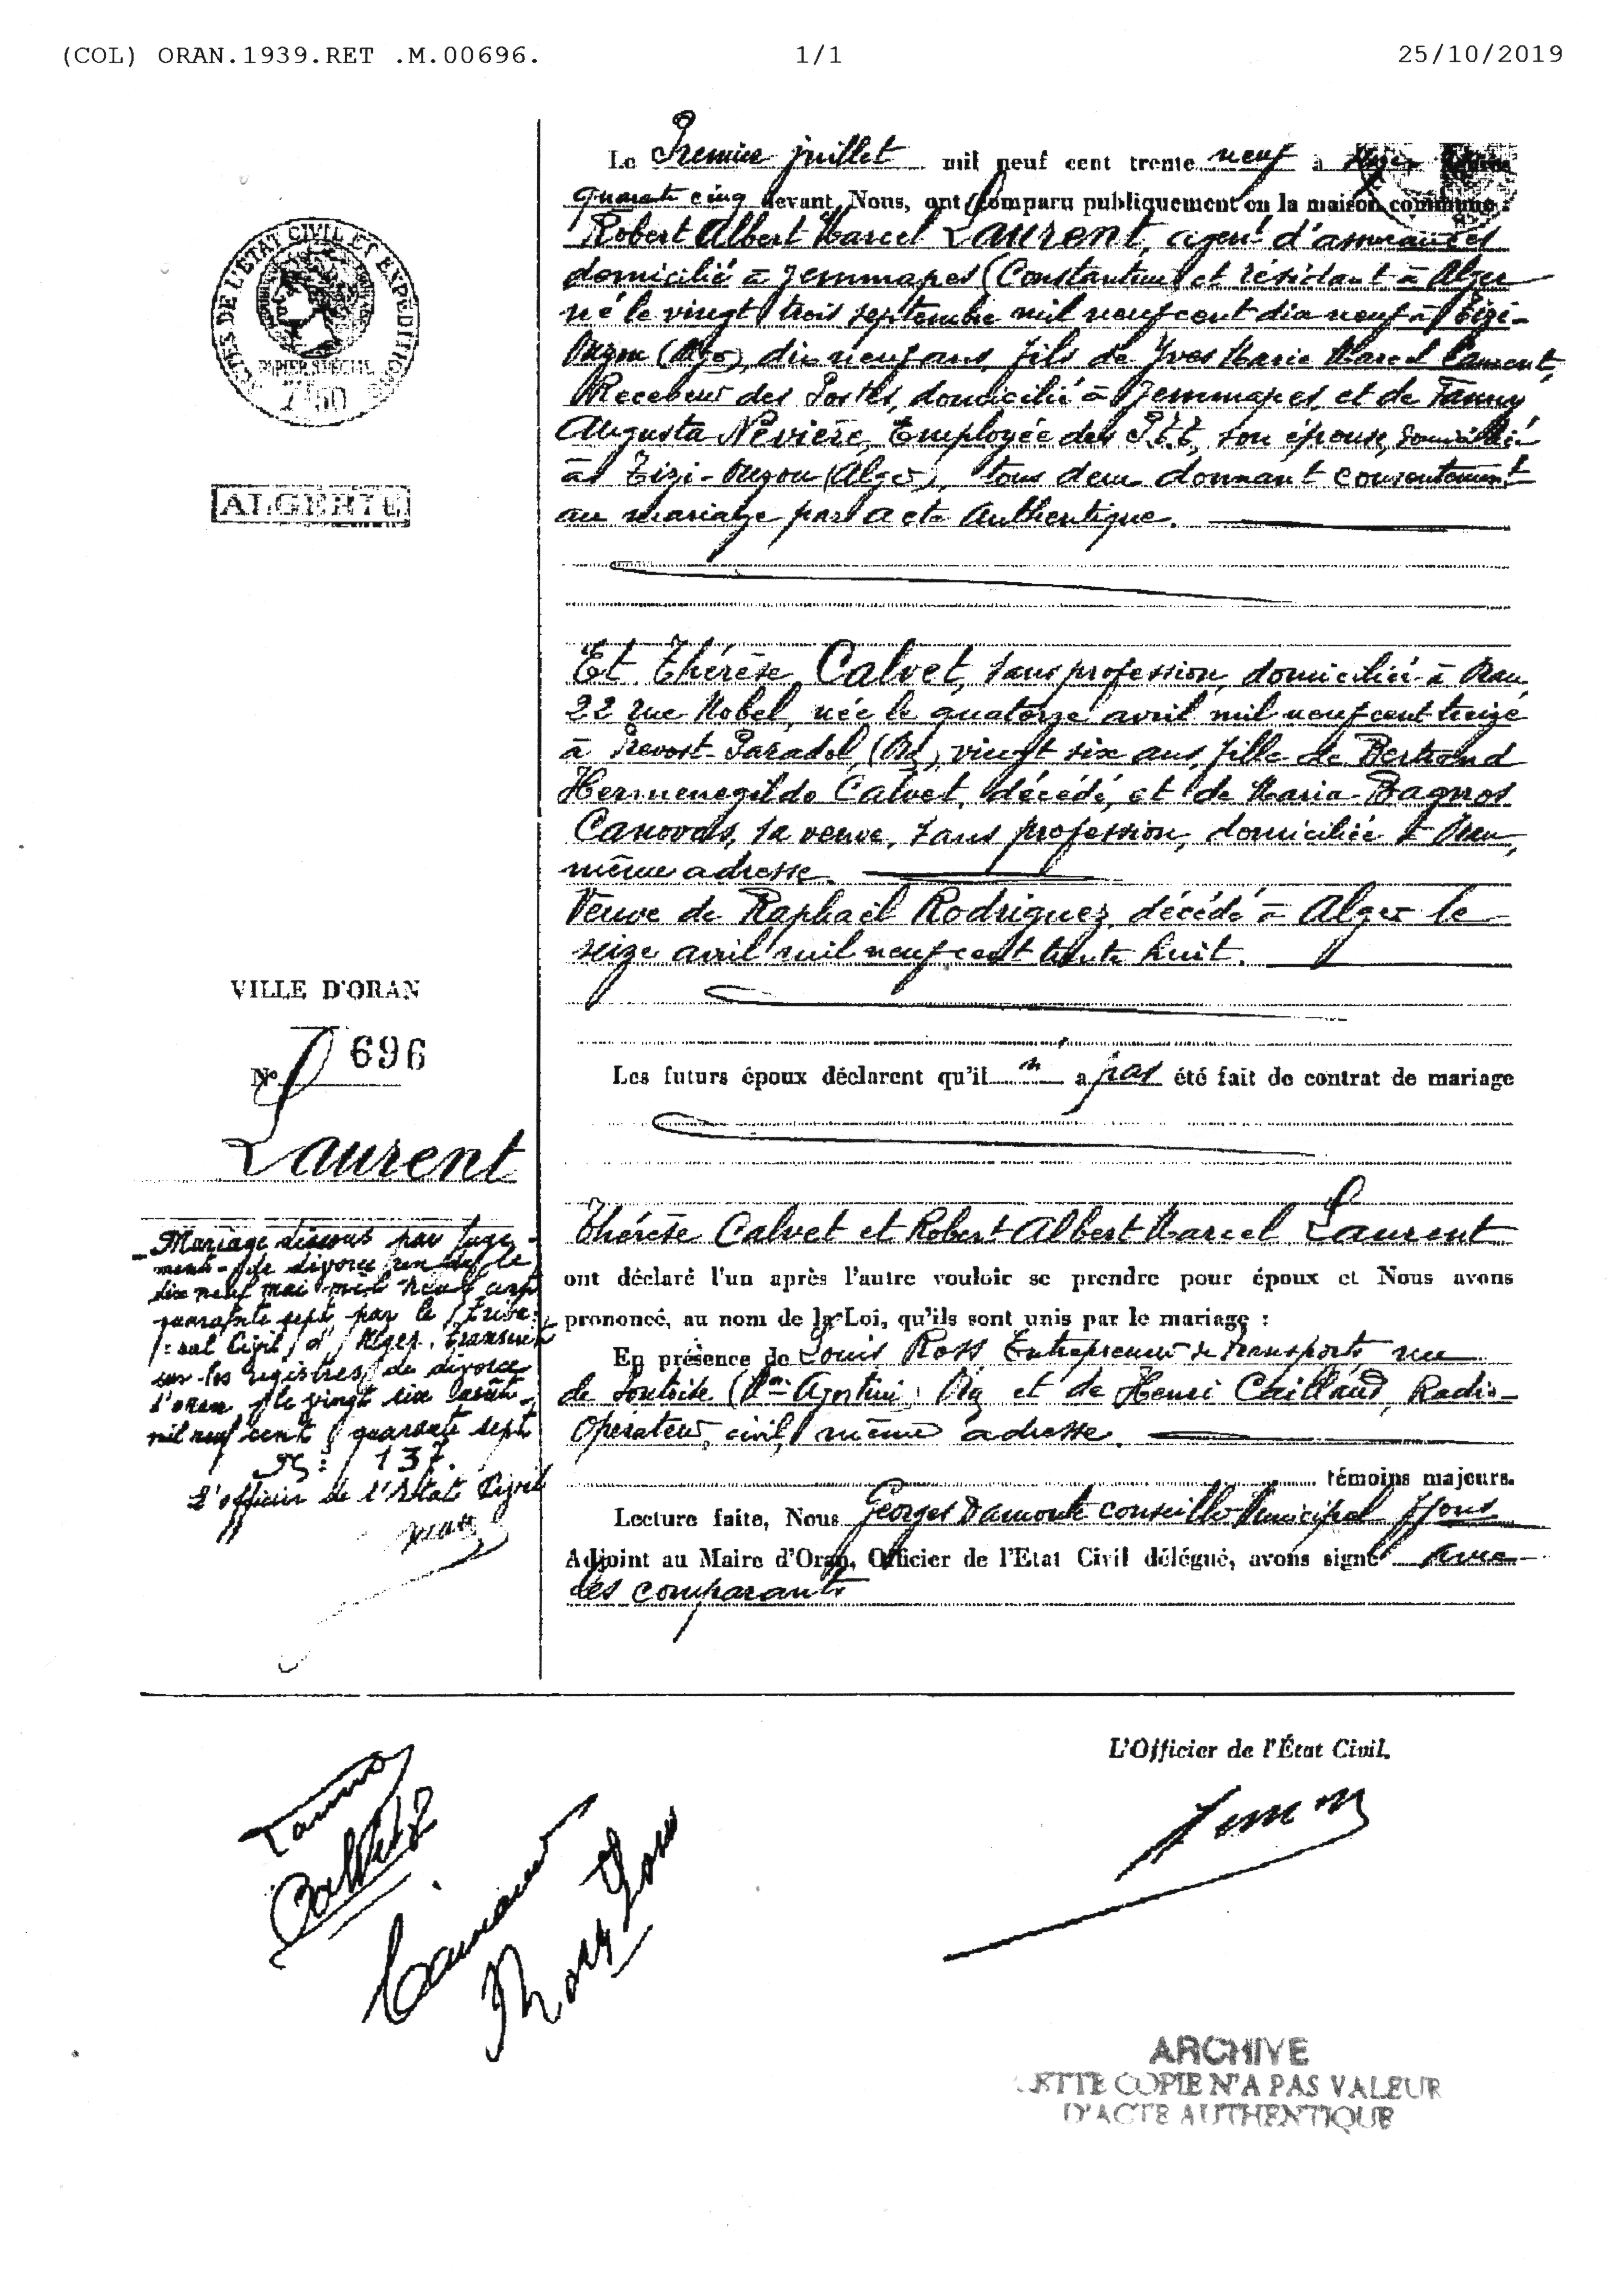 (COL) ORAN.1939.RET .M.00696. 1/1 25/10/2019
Le Premier juillet mil neuf cent trente neuf à
quarante cinq devant Nous, ont comparu publiquement en la maison commune :
Robert Albert Marcel Laurent, agent d'assurances
domicilié à Jemmapes (Constantine) et résidant à Alger
né le vingt trois septembre mil neuf cent dix neuf à Tizi-
Ouzou (Alger), dix neuf ans, fils de Yves Marie Marcel Laurent,
Receveur des Postes, domicilié à Jemmapes, et de Fanny
Augusta Nevière, Employée des P.T.T, son épouse, domiciliée
à Tizi-Ouzou (Alger), tous deux donnant consentement
au mariage par acte authentique.
Et Thérèse Calvet, sans profession, domiciliée à Oran,
22 rue Nobel, née le quatorze avril mil neuf cent treize
à Prevost-Paradol, (On), vingt six ans, fille de Bertrand
Hermenegildo Calvet, décédé, et de Maria-Bagnos
Canovas, sa veuve, sans profession, domiciliée à Oran,
même adresse.
Veuve de Raphaël Rodriguez, décédé à Alger le
seize avril mil neuf cent trente huit.
Les futurs époux déclarent qu'il n' a pas été fait de contrat de mariage
Thérèse Calvet et Robert Albert Marcel Laurent
ont déclaré l'un après l'autre vouloir se prendre pour époux et Nous avons
prononcé, au nom de la Loi, qu'ils sont unis par le mariage :
En présence de Louis Ross Entrepreneur de transports rue
de et de Henri Caillaud, Radio-
Opérateur civil, même adresse.
témoins majeurs.
Lecture faite, Nous Georges Damonte conseiller Municipal ffons
Adjoint au Maire d'Oran, Officier de l'Etat Civil délégué, avons signé avec
les comparants
ACTES DE L'ETAT CIVIL ET EXPEDITIONS
PAPIER SPECIAL
7F50
ALGERIE
VILLE D'ORAN
N° 696
Laurent
Mariage dissous par juge-
ment de divorce rendu le
dix neuf mai mil neuf cent
quarante sept par le tribu-
nal Civil d'Alger. transcrit
sur les registres de divorce
d'oran le vingt six
mil neuf cent quarante sept
N: 137.
L'officier de l'Etat Civil
L'Officier de l'État Civil.
ARCHIVE
CETTE COPIE N'A PAS VALEUR
D'ACTE AUTHENTIQUE